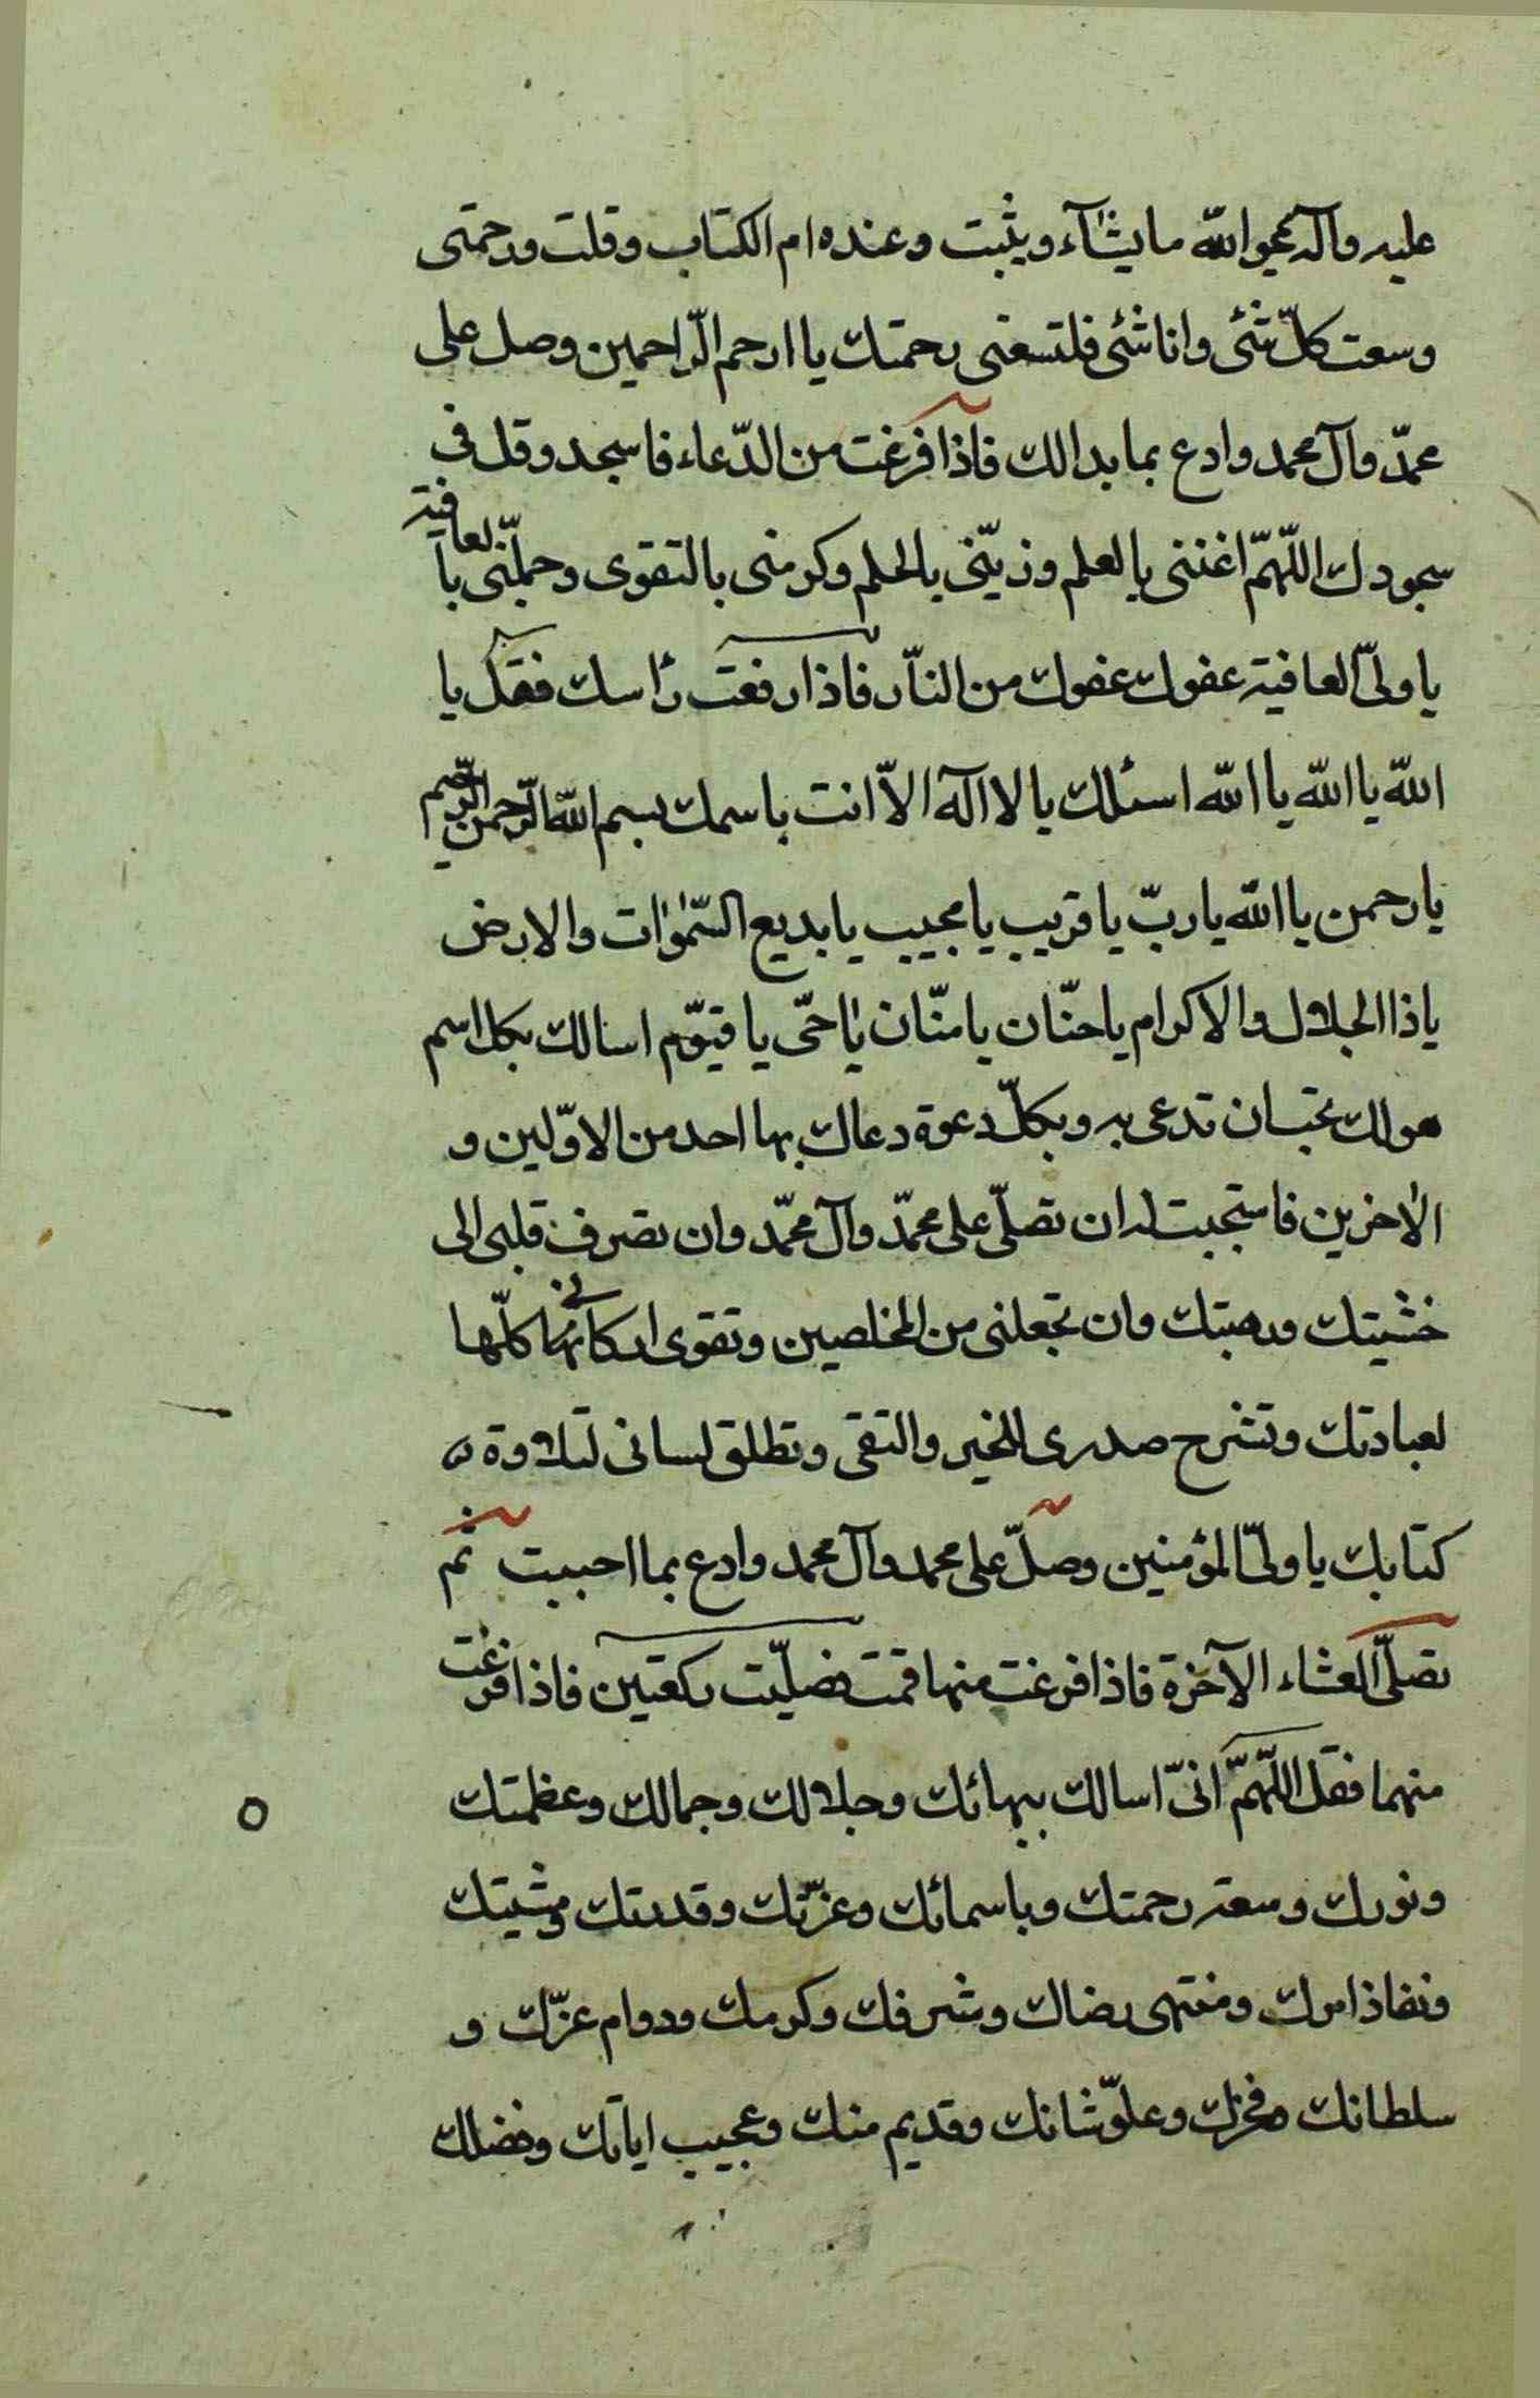 عليه وآله يمحو الله ما يشآء ويثبت وعنده ام الكتاب وقلت ورحمتى
وسعت كلّ شئى وانا شئى فلتسعنى رحمتك يا ارحم الرّاحمين وصل على
محمدّ وآل محمد وادع بما بدا لك فآذا فرغت من الدّعاء فاسجد وقل فى
سجودك اللّهمّ اغننى بالعلم وزيّنى بالحلم وكرمنى بالتقوى وجملّنى بالعافية
يا ولىّ العافية عفوك عفوك من النّار فاذا رفعت رأسك فقل يا
الله يا الله يا الله اسئلك يا لا اله الاّ انت باسمك بسم الله الرّحمن الرّحيم
يا رحمن يا الله يا ربّ يا قريب يا مجيب يا بديع السّموات والارض
يا ذا الجلال والاكرام يا حنّان يا منّان يا حىّ يا قيوّم اسالك بكل اسم
هو لك تحب ان تدعى به وبكلّ دعوة دعاك بها احد من الاوّلين و
الاخرين فاستجبت له ان تصلّى على محمدّ وآل محمّد وان تصرف قلبى الى
خشيتك ورهبتك وان تجعلنى من المخلصين وتقوى اركانها كلّها
لعبادتك وتشرح صدرى للخير والتقى وتطلق لسانى لتلاوة
كتابك يا ولىّ المؤمنين وصلّ على محمد وآل محمد وادع بما احببت ثم
تصلّى العشاء الآخرة فاذا فرغت منها قمت فصليّت ركعتين فاذا فرغت
منهما فقل اللّهمّ انىّ اسالك ببهائك وجلالك وجمالك وعظمتك
ونورك وسعة رحمتك وباسمائك وعزّتك وقدرتك ومشيتك
ونفاذ امرك ومنتهى رضاك وشرفك وكرمك ودوام عزّك و
سلطانك وفخرك وعلوّ شانك وقديم منك وعجيب اياتك وفضلك